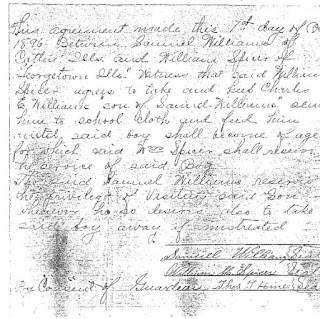 This agreement made this 7th day of
1896 Between Samuel Williams of
Catlin Ills. and William Spicer of
Georgetown Ills" Witness that said William
Spicer agrees to take and feed Charles
E Williams" son of Samuel Williams" send
him to school cloth and feed him
until said boy shall become of age
for which said Wm Spicer shall receive
the service of said Boy
The said Samuel Williams reserves
the privilege of Visiting said Son
whenever he so desires also to take
said boy away if mistreated
Samuel William Seal
William Spicer Seal
By Consent of Guardian Thos T Hines Seal